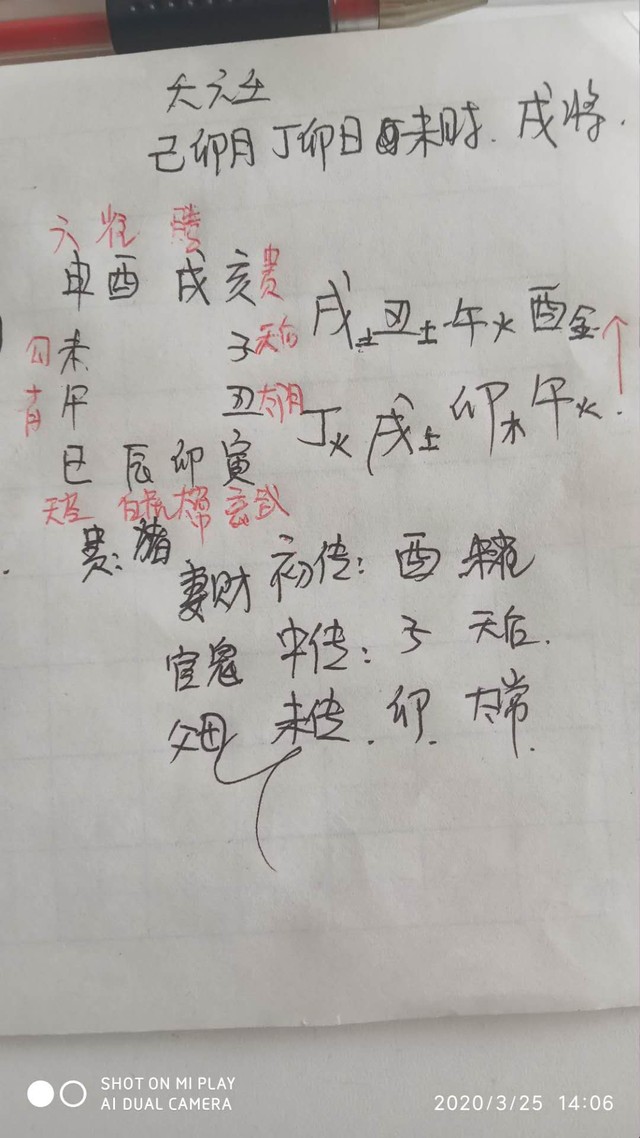 大六壬
己卯月 丁卯日 未时. 戌将.
六 雀 螣
申 酉 戌 亥 贵
勾 未 子 天后
青 午 丑 太阴
巳 辰 卯 寅
天空 白虎 太常 玄武
贵: 猪
戌土 丑土 午火 酉金
丁火 戌土 卯木 午火.
妻财 初传: 酉 朱雀
官鬼 中传: 子 天后.
父母 末传. 卯. 太常.
SHOT ON MI PLAY
AI DUAL CAMERA
2020/3/25 14:06